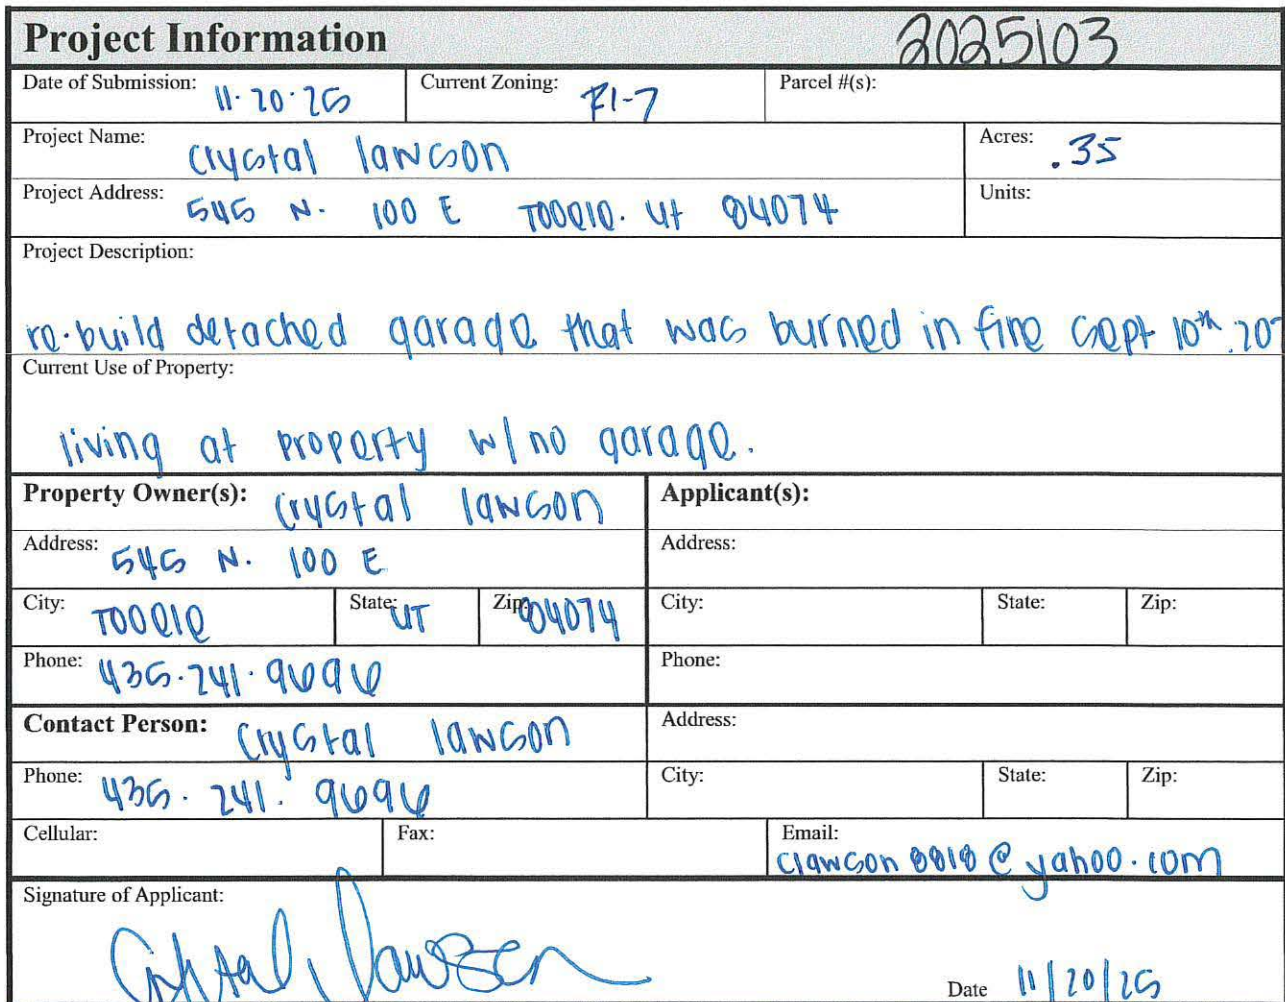 Project Information 2025103
Date of Submission: 11.20.25 Current Zoning: R1-7 Parcel #(s):
Project Name: Crystal lawson Acres: .35
Project Address: 545 N. 100 E Tooele. Ut 84074 Units:
Project Description:
re-build detached garage that was burned in fire Sept 10th.
Current Use of Property:
living at property w/ no garage.
Property Owner(s): Crystal lawson Applicant(s):
Address: 545 N. 100 E Address:
City: Tooele State: UT Zip: 84074 City: State: Zip:
Phone: 435.241.9696 Phone:
Contact Person: Crystal lawson Address:
Phone: 435. 241. 9696 City: State: Zip:
Cellular: Fax: Email: clawson8818@yahoo.com
Signature of Applicant: Crystal Lawson Date 11/20/25